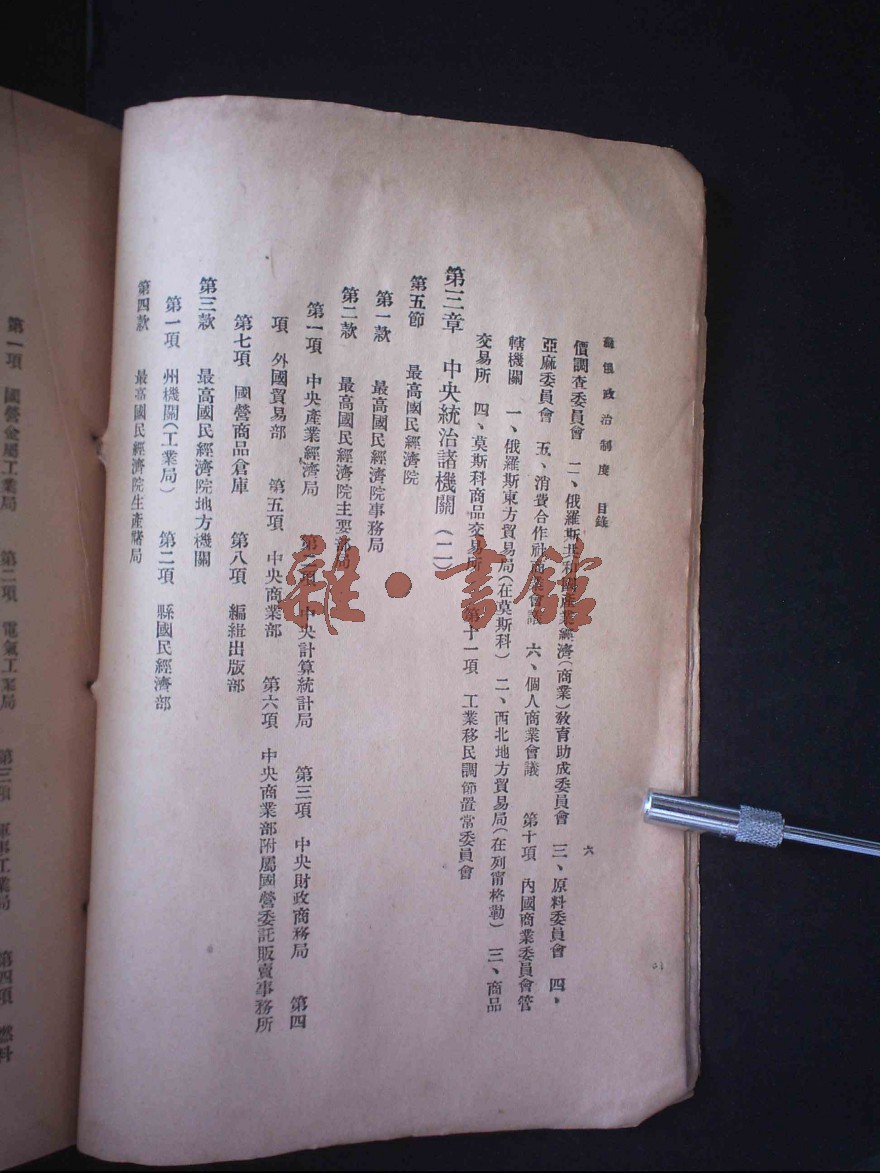 蘇俄政治制度 目錄
六
價調查委員會 二、俄羅斯共和國產業經濟(商業)敎育助成委員會 三、原料委員會 四、
亞麻委員會 五、消費合作社商業會議 六、個人商業會議 第十項 內國商業委員會管
轄機關 一、俄羅斯東方貿易局(在莫斯科) 二、西北地方貿易局(在列甯格勒) 三、商品
交易所 四、莫斯科商品交易所 第十一項 工業移民調節置常委員會
第三章 中央統治諸機關(二)
第五節 最高國民經濟院
第一款 最高國民經濟院事務局
第二款 最高國民經濟院主要部局
第一項 中央產業經濟局 第二項 中央計算統計局 第三項 中央財政商務局 第四
項 外國貿易部 第五項 中央商業部 第六項 中央商業部附屬國營委託販賣事務所
第七項 國營商品倉庫 第八項 編緝出版部
第三款 最高國民經濟院地方機關
第一項 州機關(工業局) 第二項 縣國民經濟部
第四款 最高國民經濟院生產諸局
第一項 國營金屬工業局 第二項 電氣工業局 第三項 軍事工業局 第四項 燃料
雜·書館